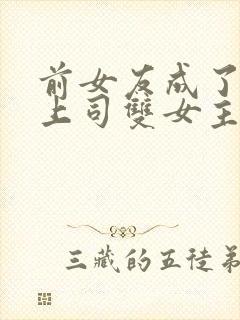 前女友成了
上司雙女主
三藏的五徒弟